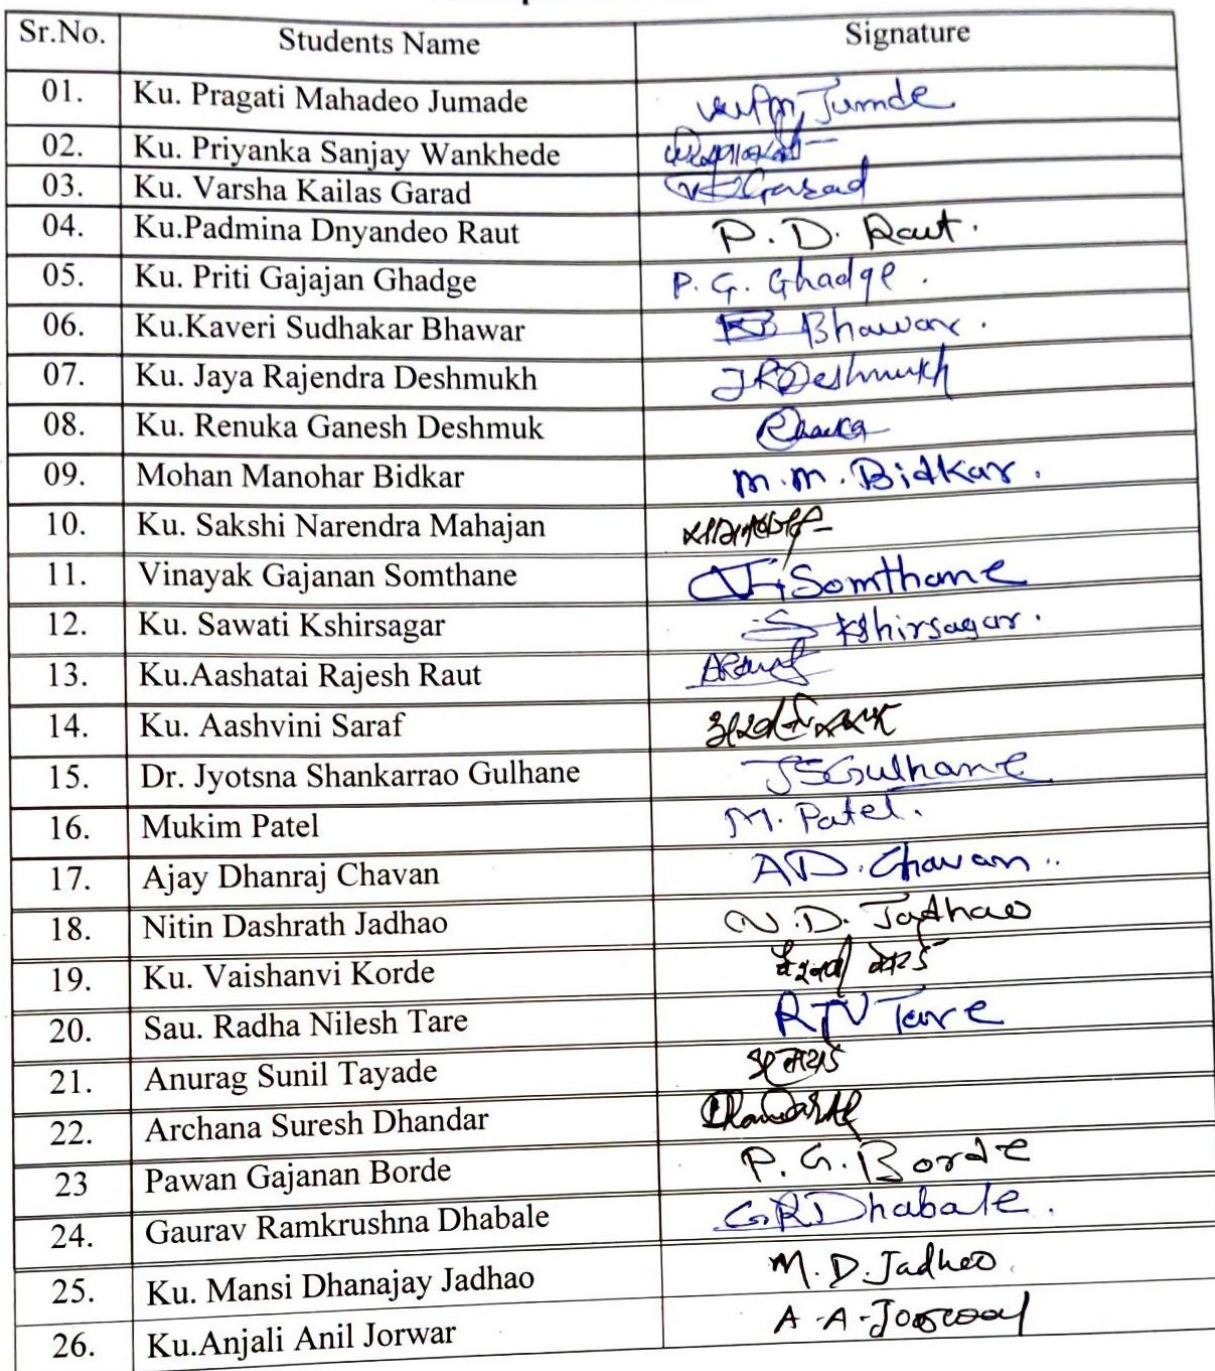 Sr.No. Students Name Signature
01. Ku. Pragati Mahadeo Jumade Jumde
02. Ku. Priyanka Sanjay Wankhede
03. Ku. Varsha Kailas Garad Garad
04. Ku.Padmina Dnyandeo Raut P. D. Raut.
05. Ku. Priti Gajajan Ghadge P. G. Ghadge.
06. Ku.Kaveri Sudhakar Bhawar Bhawar.
07. Ku. Jaya Rajendra Deshmukh JRDeshmukh
08. Ku. Renuka Ganesh Deshmuk
09. Mohan Manohar Bidkar m.m. Bidkar.
10. Ku. Sakshi Narendra Mahajan
11. Vinayak Gajanan Somthane Somthane
12. Ku. Sawati Kshirsagar S Kshirsagar.
13. Ku.Aashatai Rajesh Raut ARaut
14. Ku. Aashvini Saraf
15. Dr. Jyotsna Shankarrao Gulhane JSGulhane
16. Mukim Patel M. Patel.
17. Ajay Dhanraj Chavan AD. Chavan..
18. Nitin Dashrath Jadhao N.D. Jadhao
19. Ku. Vaishanvi Korde
20. Sau. Radha Nilesh Tare RN Tare
21. Anurag Sunil Tayade
22. Archana Suresh Dhandar
23 Pawan Gajanan Borde P. G. Borde
24. Gaurav Ramkrushna Dhabale GRDhabale.
25. Ku. Mansi Dhanajay Jadhao M.D. Jadhao.
26. Ku.Anjali Anil Jorwar A-A-Jorwar